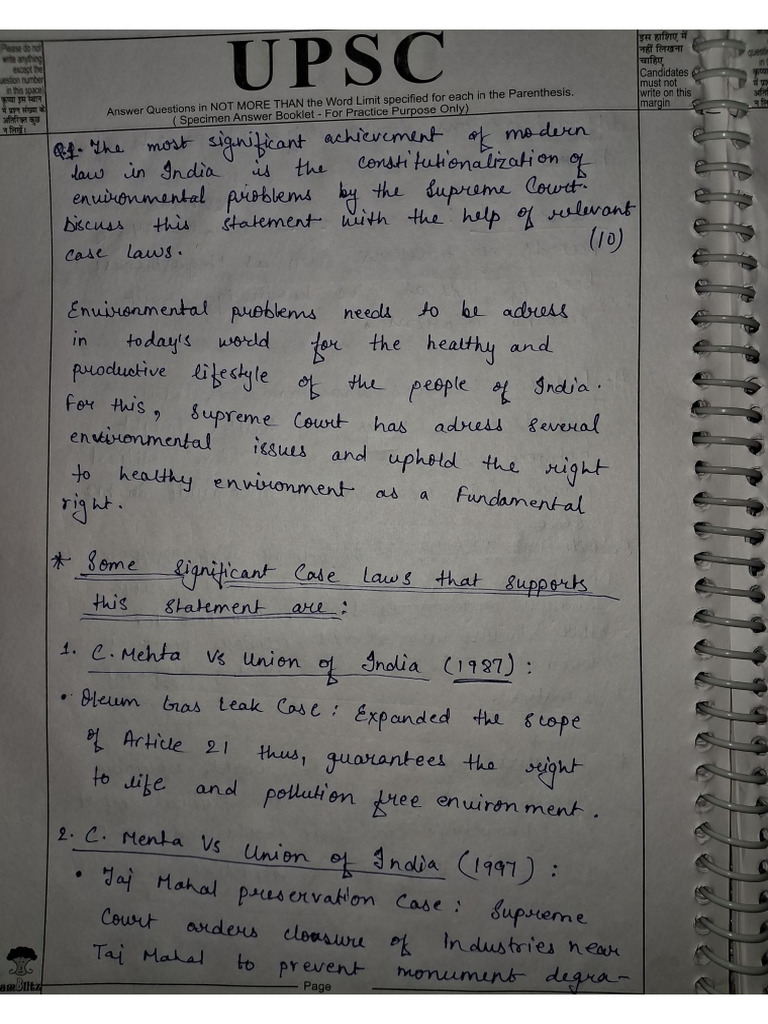 Please do not
write anything
except the
question number
in this space
कृपया इस स्थान
में प्रश्न संख्या के
अतिरिक्त कुछ
न लिखें।
UPSC
Answer Questions in NOT MORE THAN the Word Limit specified for each in the Parenthesis.
( Specimen Answer Booklet - For Practice Purpose Only)
इस हाशिए में
नहीं लिखना
चाहिए
Candidates
must not
write on this
margin
Q1. The most significant achievement of modern
law in India is the constitutionalization of
environmental problems by the Supreme Court.
Discuss this statement with the help of relevant
case laws. (10)
Environmental problems needs to be adress
in today's world for the healthy and
productive lifestyle of the people of India.
For this, Supreme Court has adress several
environmental issues and uphold the right
to healthy environment as a Fundamental
right.
* Some Significant Case Laws that supports
this statement are:
1. C. Mehta Vs Union of India (1987) :
• Oleum Gas Leak Case : Expanded the scope
of Article 21 thus, guarantees the right
to life and pollution free environment.
2. C. Menta Vs Union of India (1997) :
• Taj Mahal preservation Case : Supreme
Court orders closure of Industries near
Taj Mahal to prevent monument degra-
Page